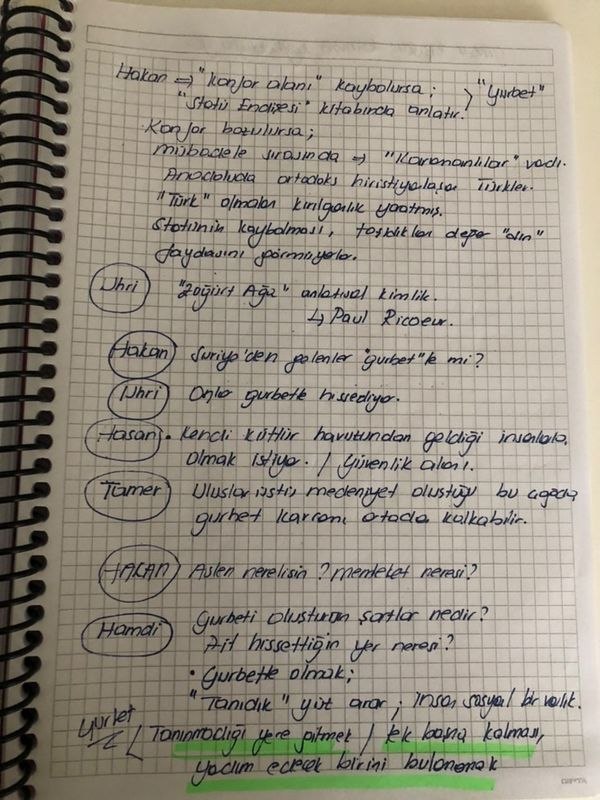 Hakan => "Konfor alanı" kaybolursa; > "Gurbet"
"Statü Endişesi" kitabında anlatır.
Konfor bozulursa;
mübadele sırasında => "Karamanlılar" vadı.
Anadoluda ortadoks hiristiyalaşan Türkler.
"Türk" olmaları kırılganlık yaratmış.
Statünin kaybolması, taşıdıkları değer
faydasını görmüyorlar.
Uhri "Zoğürt Ağa" anlatısal kimlik.
↳ Paul Ricoeur.
Hakan Suriye'den gelenler "gurbet"te mi?
Uhri Onlar gurbette hissediyor.
Hasan • Kendi kültür havutundan geldiği insanlarla
olmak istiyor. / Güvenlik alanı.
Tamer Uluslarüstü medeniyet oluştuğu bu çağda
gurbet kavramı ortada kalkabilir.
HAKAN Aslen nerelisin? memleket neresi?
Hamdi Gurbeti oluşturan şartlar nedir?
Ait hissettiğin yer neresi?
• Gurbette olmak;
"Tanıdık" yüz arar; insan sosyal bir varlık.
Gurbet [ Tanınmadığı yere gitmek / tek başına kalması,
yardım edecek birini bulamamak